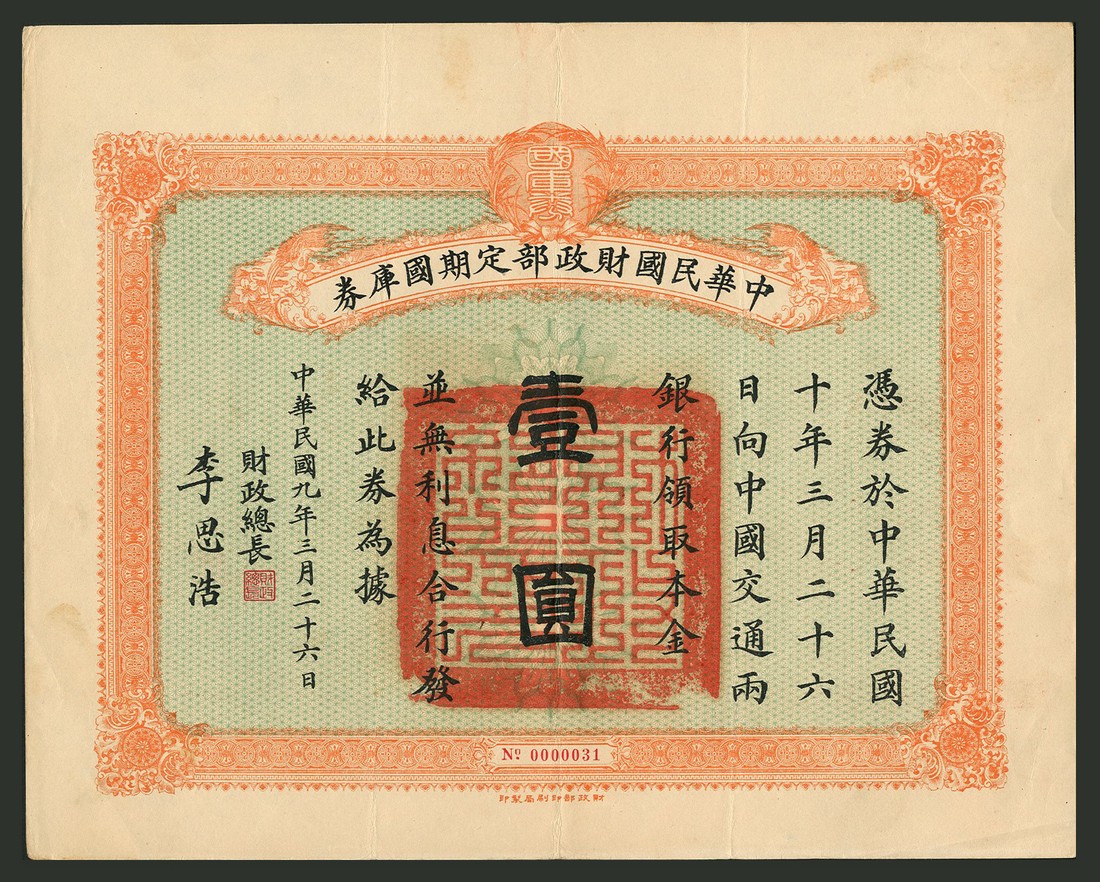 國庫券
中華民國財政部定期國庫券
憑券於中華民國
十年三月二十六
日向中國交通兩
銀行領取本金
壹圓
並無利息合行發
給此券為據
中華民國九年三月二十六日
財政總長
李思浩
No. 0000031
財政部印刷局製印